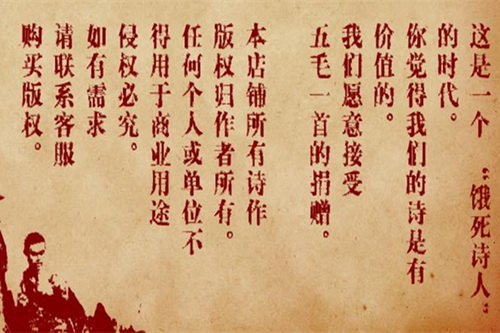 这是一个“饿死诗人”
的时代。
你觉得我们的诗是有
价值的。
我们愿意接受
五毛一首的捐赠。
本店铺所有诗作
版权归作者所有。
任何个人或单位不
得用于商业用途
侵权必究。
如有需求
请联系客服
购买版权。